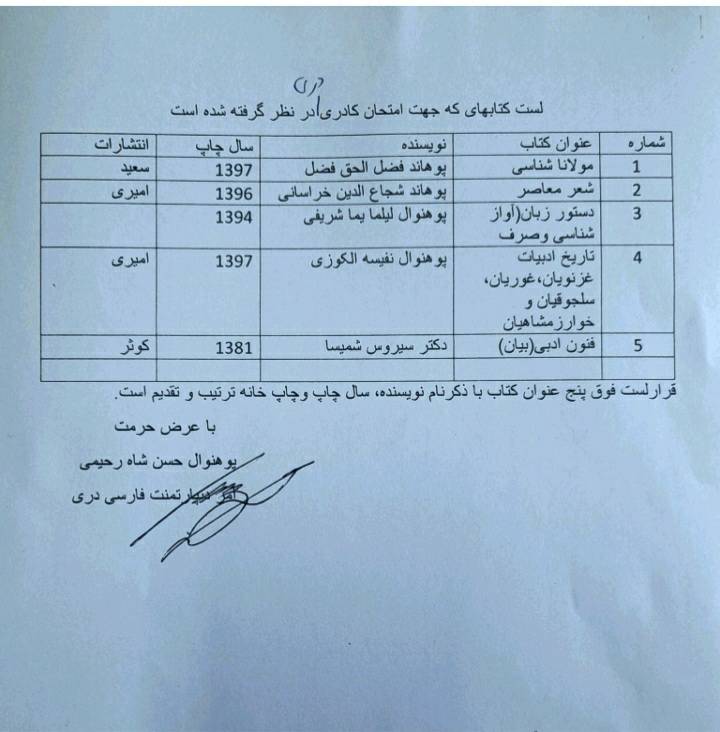 دری
لست کتابهای که جهت امتحان کادری در نظر گرفته شده است
شماره عنوان کتاب نویسنده سال چاپ انتشارات
1 مولانا شناسی پوهاند فضل الحق فضل 1397 سعید
2 شعر معاصر پوهاند شجاع الدین خراسانی 1396 امیری
3 دستور زبان(آواز پوهنوال لیلما یما شریفی 1394
شناسی وصرف
4 تاریخ ادبیات پوهنوال نفیسه الکوزی 1397 امیری
غزنویان،غوریان،
سلجوقیان و
خوارزمشاهیان
5 فنون ادبی(بیان) دکتر سیروس شمیسا 1381 کوثر
قرارلست فوق پنج عنوان کتاب با ذکرنام نویسنده، سال چاپ وچاپ خانه ترتیب و تقدیم است.
با عرض حرمت
پوهنوال حسن شاه رحیمی
آمر دیپارتمنت فارسی دری